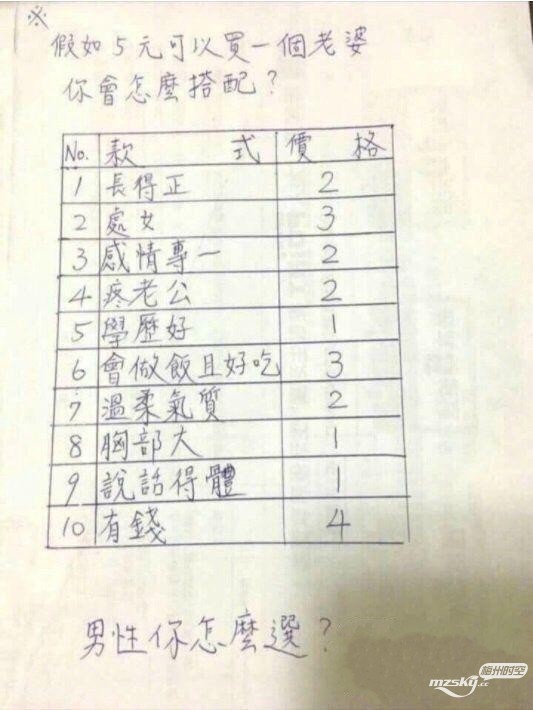 ※
假如5元可以買一個老婆
你會怎麼搭配?
No. 款 式 價 格
1 長得正 2
2 處女 3
3 感情專一 2
4 疼老公 2
5 學歷好 1
6 會做飯且好吃 3
7 溫柔氣質 2
8 胸部大 1
9 說話得體 1
10 有錢 4
男性你怎麼選?
梅州时空
mzsky.cc